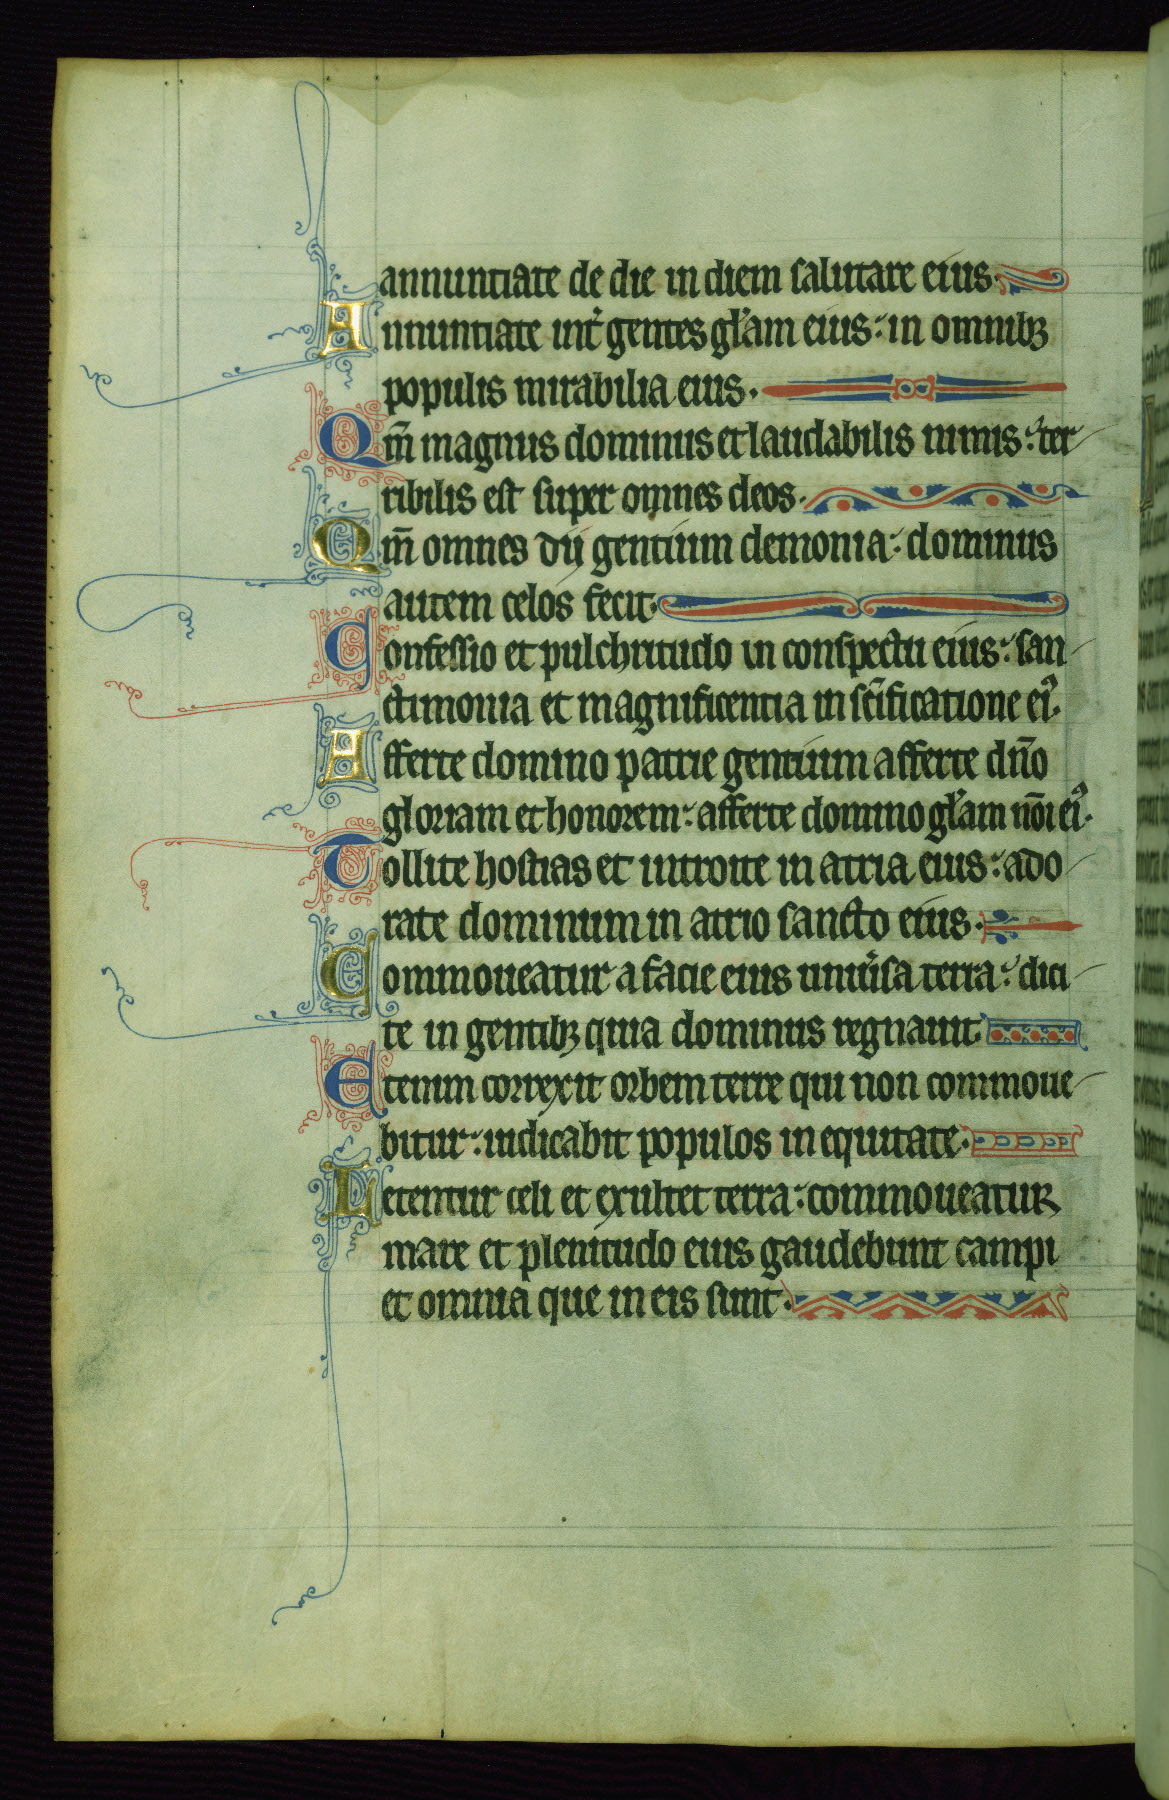 annuntiate de die in diem salutare eius.
Annuntiate int̾ gentes gl̾am eius: in omnibꝫ
populis mirabilia eius.
Qm̄ magnus dominus et laudabilis nimis: ter
ribilis est super omnes deos.
Qm̄ omnes dij gentium demonia: dominus
autem celos fecit.
Confessio et pulchritudo in conspectu eius: san
ctimonia et magnificentia in sc̄ificatione eiꝰ.
Afferte domino patrie gentium afferte dn̄o
gloriam et honorem: afferte domino gl̾am nōi eiꝰ.
Tollite hostias et introite in atria eius: ado
rate dominum in atrio sancto eius.
Commoueatur a facie eius uniu̾sa terra: dici
te in gentibꝫ quia dominus regnauit.
Etenim correxit orbem terre qui non commoue
bitur: iudicabit populos in equitate.
Letentur celi et exultet terra: commoueatur
mare et plenitudo eius gaudebunt campi
et omnia que in eis sunt.